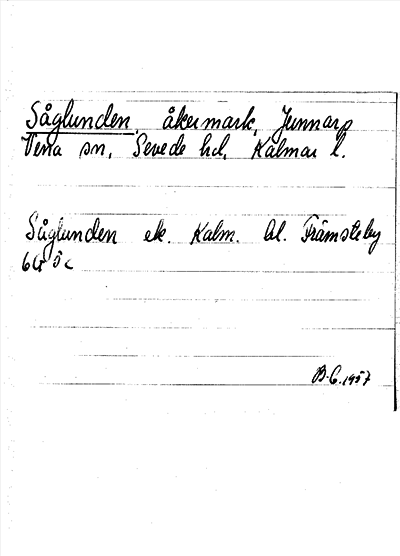 Såglunden, åkermark, Junnarp
Vena sn, Sevede hd, Kalmar l.
Såglunden ek. Kalm. bl. Främsteby
6G 5c
B.C. 1957